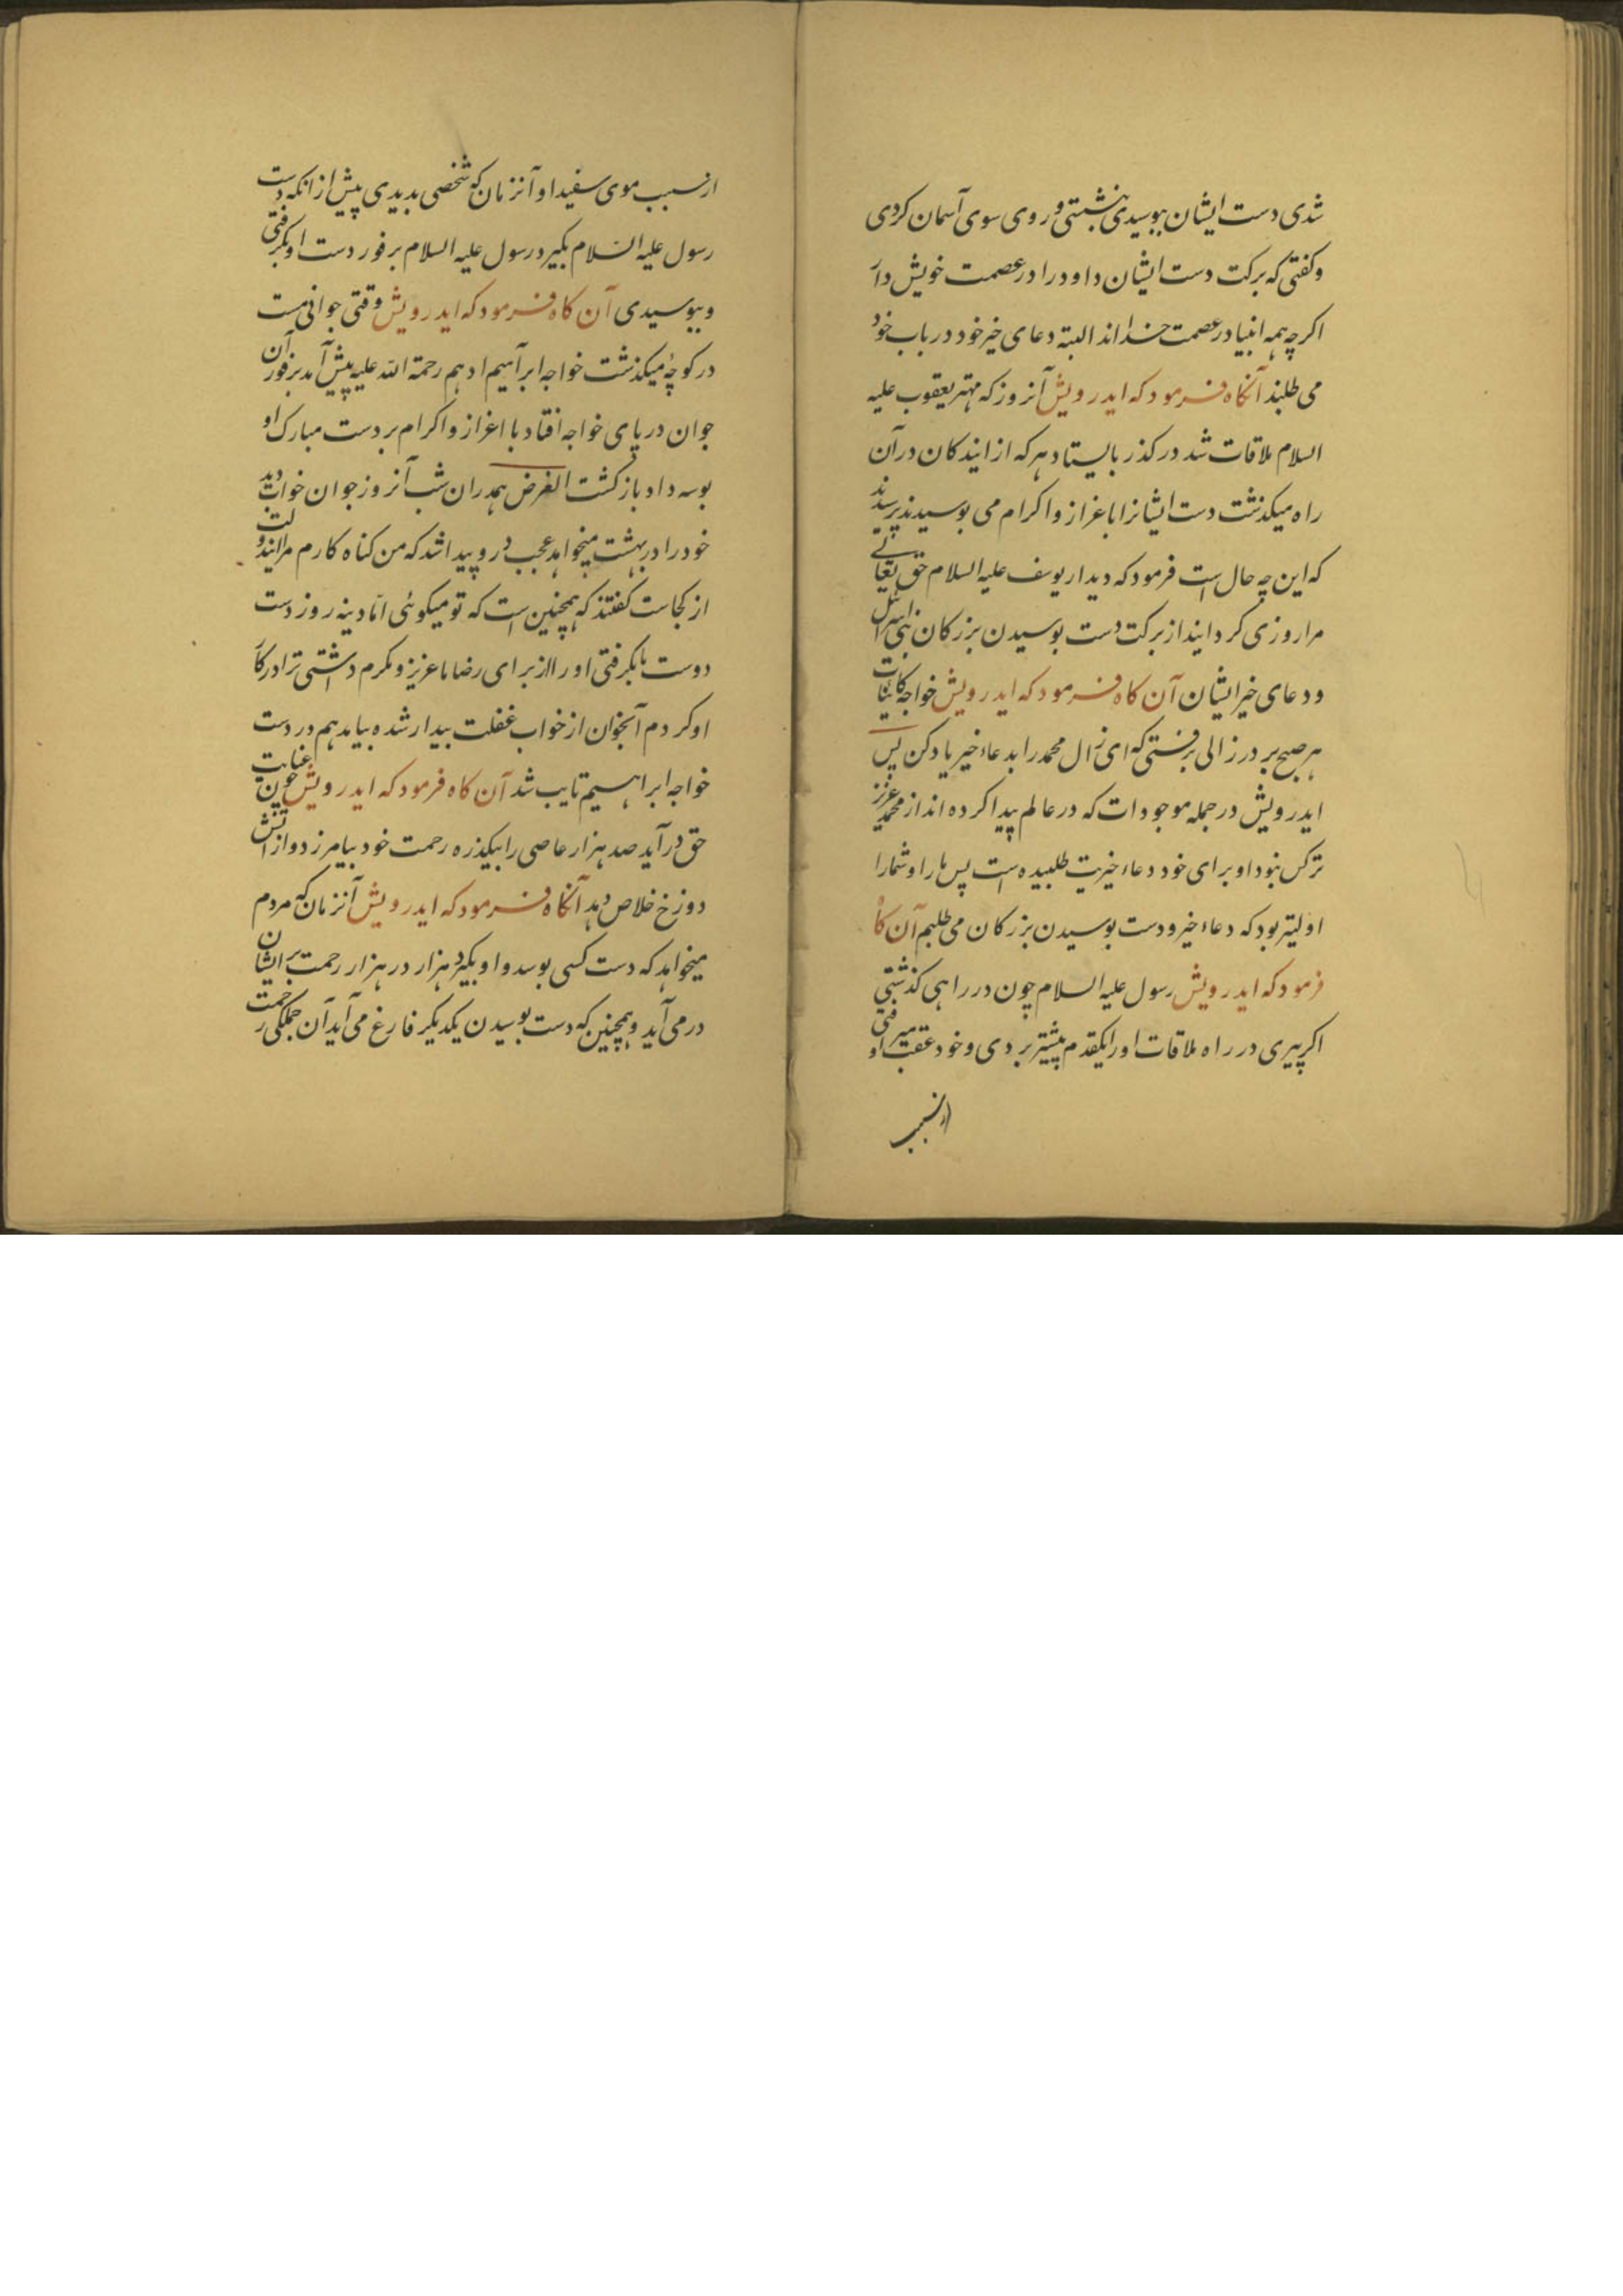 شدی دست ایشان ببوسیدی بنشستی و روی سوی آسمان کردی
و کفتی که برکت دست ایشان داود را در عصمت خویش دار
اکرچه همه انبیا در عصمت خدا اند البته دعای خیر خود در باب خود
می طلبند آنکاه فرمود که ایدرویش آنروز که مهتر یعقوب علیه
السلام ملاقات شد در کذر بایستاد هر که از ایندکان در آن
راه میکذشت دست ایشانرا باعزاز و اکرام می بوسیدند پرسیدند
که این چه حال است فرمود که دیدار یوسف علیه السلام حق تعالی
مرا روزی کردانید از برکت دست بوسیدن بزرکان بنی اسرائیل
و دعای خیر ایشان آن کاه فرمود که ایدرویش خواجه کائنات
هر صبح بر در زالی برفتی که ای زال محمد را بدعاء خیر یاد کن پس
ایدرویش در جمله موجودات که در عالم پیدا کرده اند از محمد عزیز
ترکس نبود او برای خود دعاء خیریت طلبیده است پس ما را و شما را
اولیتر بود که دعاء خیر و دست بوسیدن بزرکان می طلبم آن کاه
فرمود که ایدرویش رسول علیه السلام چون در راهی کذشتی
اکر پیری در راه ملاقات او را یکقدم پیشتر بردی و خود عقب او میرفتی
ازسبب
ازسبب موی سفید او آنزمان که شخصی بدیدی پیش از انکه دست
رسول علیه السلام بکیرد رسول علیه السلام برفور دست او بکرفتی
و ببوسیدی آن کاه فرمود که ایدرویش وقتی جوانی مست
در کوچهٔ میکذشت خواجه ابراهیم ادهم رحمة الله علیه پیش آمد برفور آن
جوان در پای خواجه افتاد با اعزاز و اکرام بر دست مبارک او
بوسه داد بازکشت الغرض همدران شب آنروز جوان خواب دید
خود را در بهشت میخواهد عجب درو پیدا شد که من کناه کارم مرا این دولت
از کجاست کفتند که همچنین است که تو میکوئی اما دینه روز دست
دوست ما بکرفتی او را از برای رضا ما عزیز و مکرم داشتی ترا در کار
او کردم آنجوان از خواب غفلت بیدار شده بیامد هم در دست
خواجه ابراهیم تایب شد آن کاه فرمود که ایدرویش چون عنایت
حق درآید صد هزار عاصی را بیکذره رحمت خود بیامرزد و از آتش
دوزخ خلاص دهد آنکاه فرمود که ایدرویش آنزمان که مردم
میخواهد که دست کسی بوسد و او بکیرد هزار در هزار رحمت بر ایشان
در می آید و همچنین که دست بوسیدن یکدیکر فارغ می آید آن جملکی رحمت